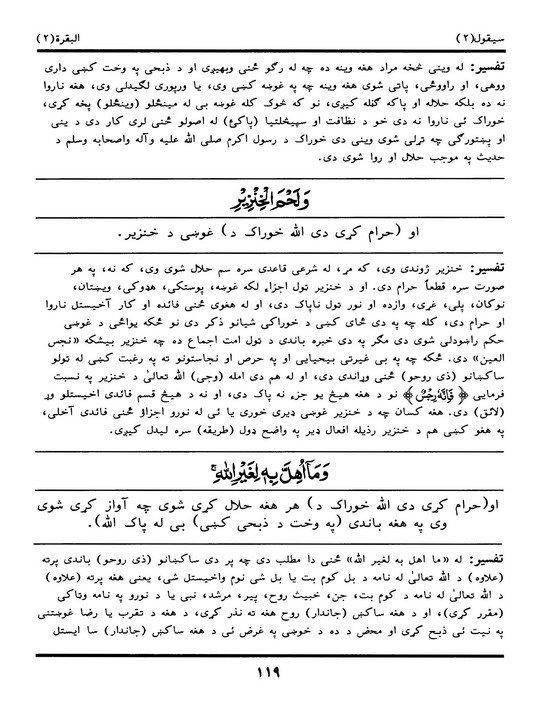 سيقول(٢) البقرة(٢)
تفسير: له وينې څخه مراد هغه وينه ده چه له رګو څنې وبهيږي او د ذبحې په وخت کښې داري
ووهي، او راووځي، پاتې شوې هغه وينه چه په غوښه کښې وي، يا وربورې لګيدلې وي، هغه ناروا
نه ده بلکه حلاله او پاکه ګڼله کيږي، نو که څوک کله غوښه بې له مينځلو (وينځلو) پخه کړي،
خوراک ئې ناروا نه دی خو د نظافت او سپيڅلتيا (پاکۍ) له اصولو څنې لرې کار دی د ينې
او پښتورګي چه تړلې شوې وينې دي خوراک د رسول اکرم صلی الله عليه وآله واصحابه وسلم د
حديث په موجب حلال او روا شوی دی.
وَلَحْمَ الْخِنْزِيْرِ
او (حرام کړې دي الله خوراک د) غوښې د خنزير.
تفسير: خنزير ژوندی وي، که مړ، له شرعي قاعدې سره سم حلال شوی وي، که نه، په هر
صورت سره قطعاً حرام دی. او د خنزير ټول اجزاء لکه غوښه، پوستکی، هډوکي، ويښتان،
نوکان، پلې، غړي، وازده او نور ټول ناپاک دي، او له هغوی څنې فائده او کار اخيستل ناروا
او حرام دي، کله چه په دې ځای کښې د خوراکي شيانو ذکر دی نو ځکه يواځې د غوښې
حکم راښودلی شوی دی مګر په دې خبره باندې د ټول امت اجماع ده چه خنزير بيشکه «نجس
العين» دی. ځکه چه په بې غيرتۍ بيحيايۍ او په حرص او نجاستونو ته په رغبت کښې له ټولو
ساکښانو (ذی روحو) څنې وړاندې دی، او له هم دې امله (وجې) الله تعالیٰ د خنزير په نسبت
فرمايي ﴿ فَاِنَّهٗ رِجْسٌ ﴾ نو د هغه هيڅ يو جزء نه پاک دی، او نه د هيڅ قسم فائدې اخيستلو وړ
(لائق) دی. هغه کسان چه د خنزير غوښې ډيرې خوري يا ئې له نورو اجزاؤ څنې فائدې اخلي،
په هغو کښې هم د خنزير رذيله افعال ډير په واضح ډول (طريقه) سره ليدل کيږي.
وَمَآ اُهِلَّ بِهٖ لِغَيْرِ اللهِ ۚ
او(حرام کړې دي الله خوراک د) هر هغه حلال کړي شوي چه آواز کړی شوی
وي په هغه باندې (په وخت د ذبحې کښې) بې له پاک الله).
تفسير: له «ما اهل به لغير الله» څنې دا مطلب دی چه پر دې ساکښانو (ذی روحو) باندې پرته
(علاوه) د الله تعالیٰ له نامه د بل کوم بت يا بل شي نوم واخيستل شي، يعنې هغه پرته (علاوه)
د الله تعالیٰ له نامه د کوم بت، جن، خبيث روح، پير، مرشد، نبي يا د نورو په نامه وټاکي
(مقرر کړي)، او د هغه ساکښ (جاندار) روح هغه ته نذر کړي، د هغه د تقرب يا رضا غوښتنې
په نيت ئې ذبح کړي او محض د ده د خوښې په غرض ئې د هغه ساکښ (جاندار) سا ايستل
١١٩